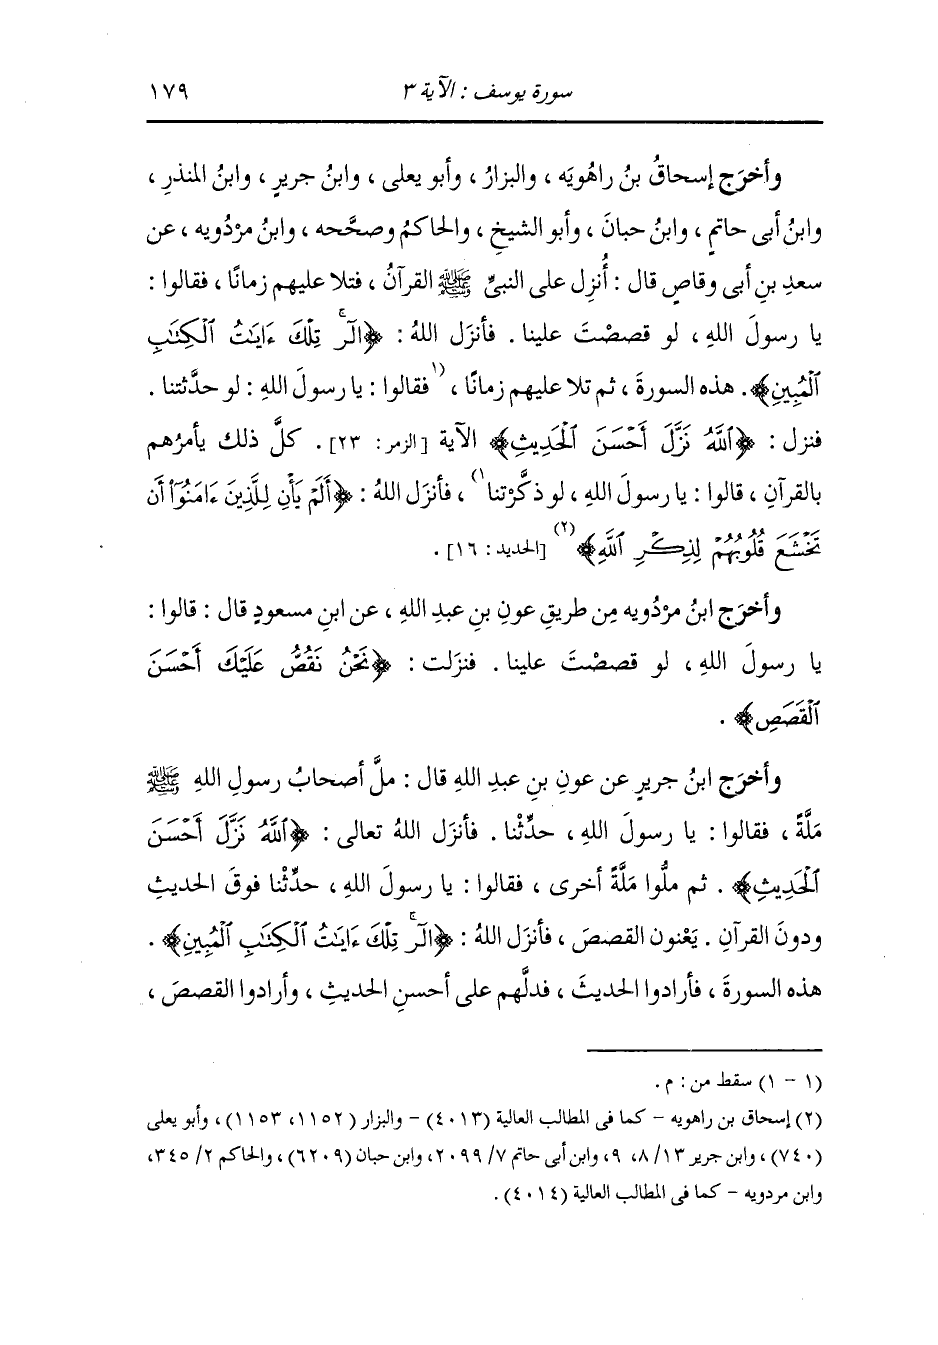 سورة يوسف : الآية ٣ ١٧٩
وأخرَج إسحاقُ بنُ راهُويَه ، والبزارُ ، وأبو يعلى ، وابنُ جريرٍ ، وابنُ المنذرِ ،
وابنُ أبى حاتمٍ ، وابنُ حبانَ ، وأبو الشيخِ ، والحاكمُ وصحَّحه ، وابنُ مرْدُويه ، عن
سعدِ بنِ أبى وقاصٍ قال : أُنزِل على النبىِّ ﷺ القرآنُ ، فتلا عليهم زمانًا ، فقالوا :
يا رسولَ اللهِ ، لو قصصْتَ علينا . فأنزَل اللهُ : ﴿الٓرۚ تِلْكَ ءَايَٰتُ ٱلْكِتَٰبِ
ٱلْمُبِينِ﴾ . هذه السورةَ ، ثم تلا عليهم زمانًا ، (١فقالوا : يا رسولَ اللهِ : لو حدَّثتنا .
فنزل : ﴿ٱللَّهُ نَزَّلَ أَحْسَنَ ٱلْحَدِيثِ﴾ الآية [الزمر: ٢٣] . كلَّ ذلك يأمرُهم
بالقرآنِ ، قالوا : يا رسولَ اللهِ ، لو ذكَّرْتنا١) ، فأنزَل اللهُ : ﴿أَلَمْ يَأْنِ لِلَّذِينَ ءَامَنُوٓا۟ أَن
تَخْشَعَ قُلُوبُهُمْ لِذِكْرِ ٱللَّهِ﴾(٢) [الحديد: ١٦] .
وأخرَج ابنُ مرْدُويه مِن طريقِ عونِ بنِ عبدِ اللهِ ، عن ابنِ مسعودٍ قال : قالوا :
يا رسولَ اللهِ ، لو قصصْتَ علينا . فنزَلت : ﴿نَحْنُ نَقُصُّ عَلَيْكَ أَحْسَنَ
ٱلْقَصَصِ﴾ .
وأخرَج ابنُ جريرٍ عن عونِ بنِ عبدِ اللهِ قال : ملَّ أصحابُ رسولِ اللهِ ﷺ
مَلَّةً ، فقالوا : يا رسولَ اللهِ ، حدِّثْنا . فأنزَل اللهُ تعالى : ﴿ٱللَّهُ نَزَّلَ أَحْسَنَ
ٱلْحَدِيثِ﴾ . ثم ملُّوا مَلَّةً أخرى ، فقالوا : يا رسولَ اللهِ ، حدِّثْنا فوقَ الحديثِ
ودونَ القرآنِ . يَعْنون القصصَ ، فأنزَل اللهُ : ﴿الٓرۚ تِلْكَ ءَايَٰتُ ٱلْكِتَٰبِ ٱلْمُبِينِ﴾ .
هذه السورةَ ، فأرادوا الحديثَ ، فدلَّهم على أحسنِ الحديثِ ، وأرادوا القصصَ ،
(١ - ١) سقط من : م .
(٢) إسحاق بن راهويه - كما فى المطالب العالية (٤٠١٣) - والبزار (١١٥٢، ١١٥٣) ، وأبو يعلى
(٧٤٠) ، وابن جرير ١٣/ ٨، ٩ ، وابن أبى حاتم ٧/ ٢٠٩٩، وابن حبان (٦٢٠٩) ، والحاكم ٢/ ٣٤٥،
وابن مردويه - كما فى المطالب العالية (٤٠١٤) .